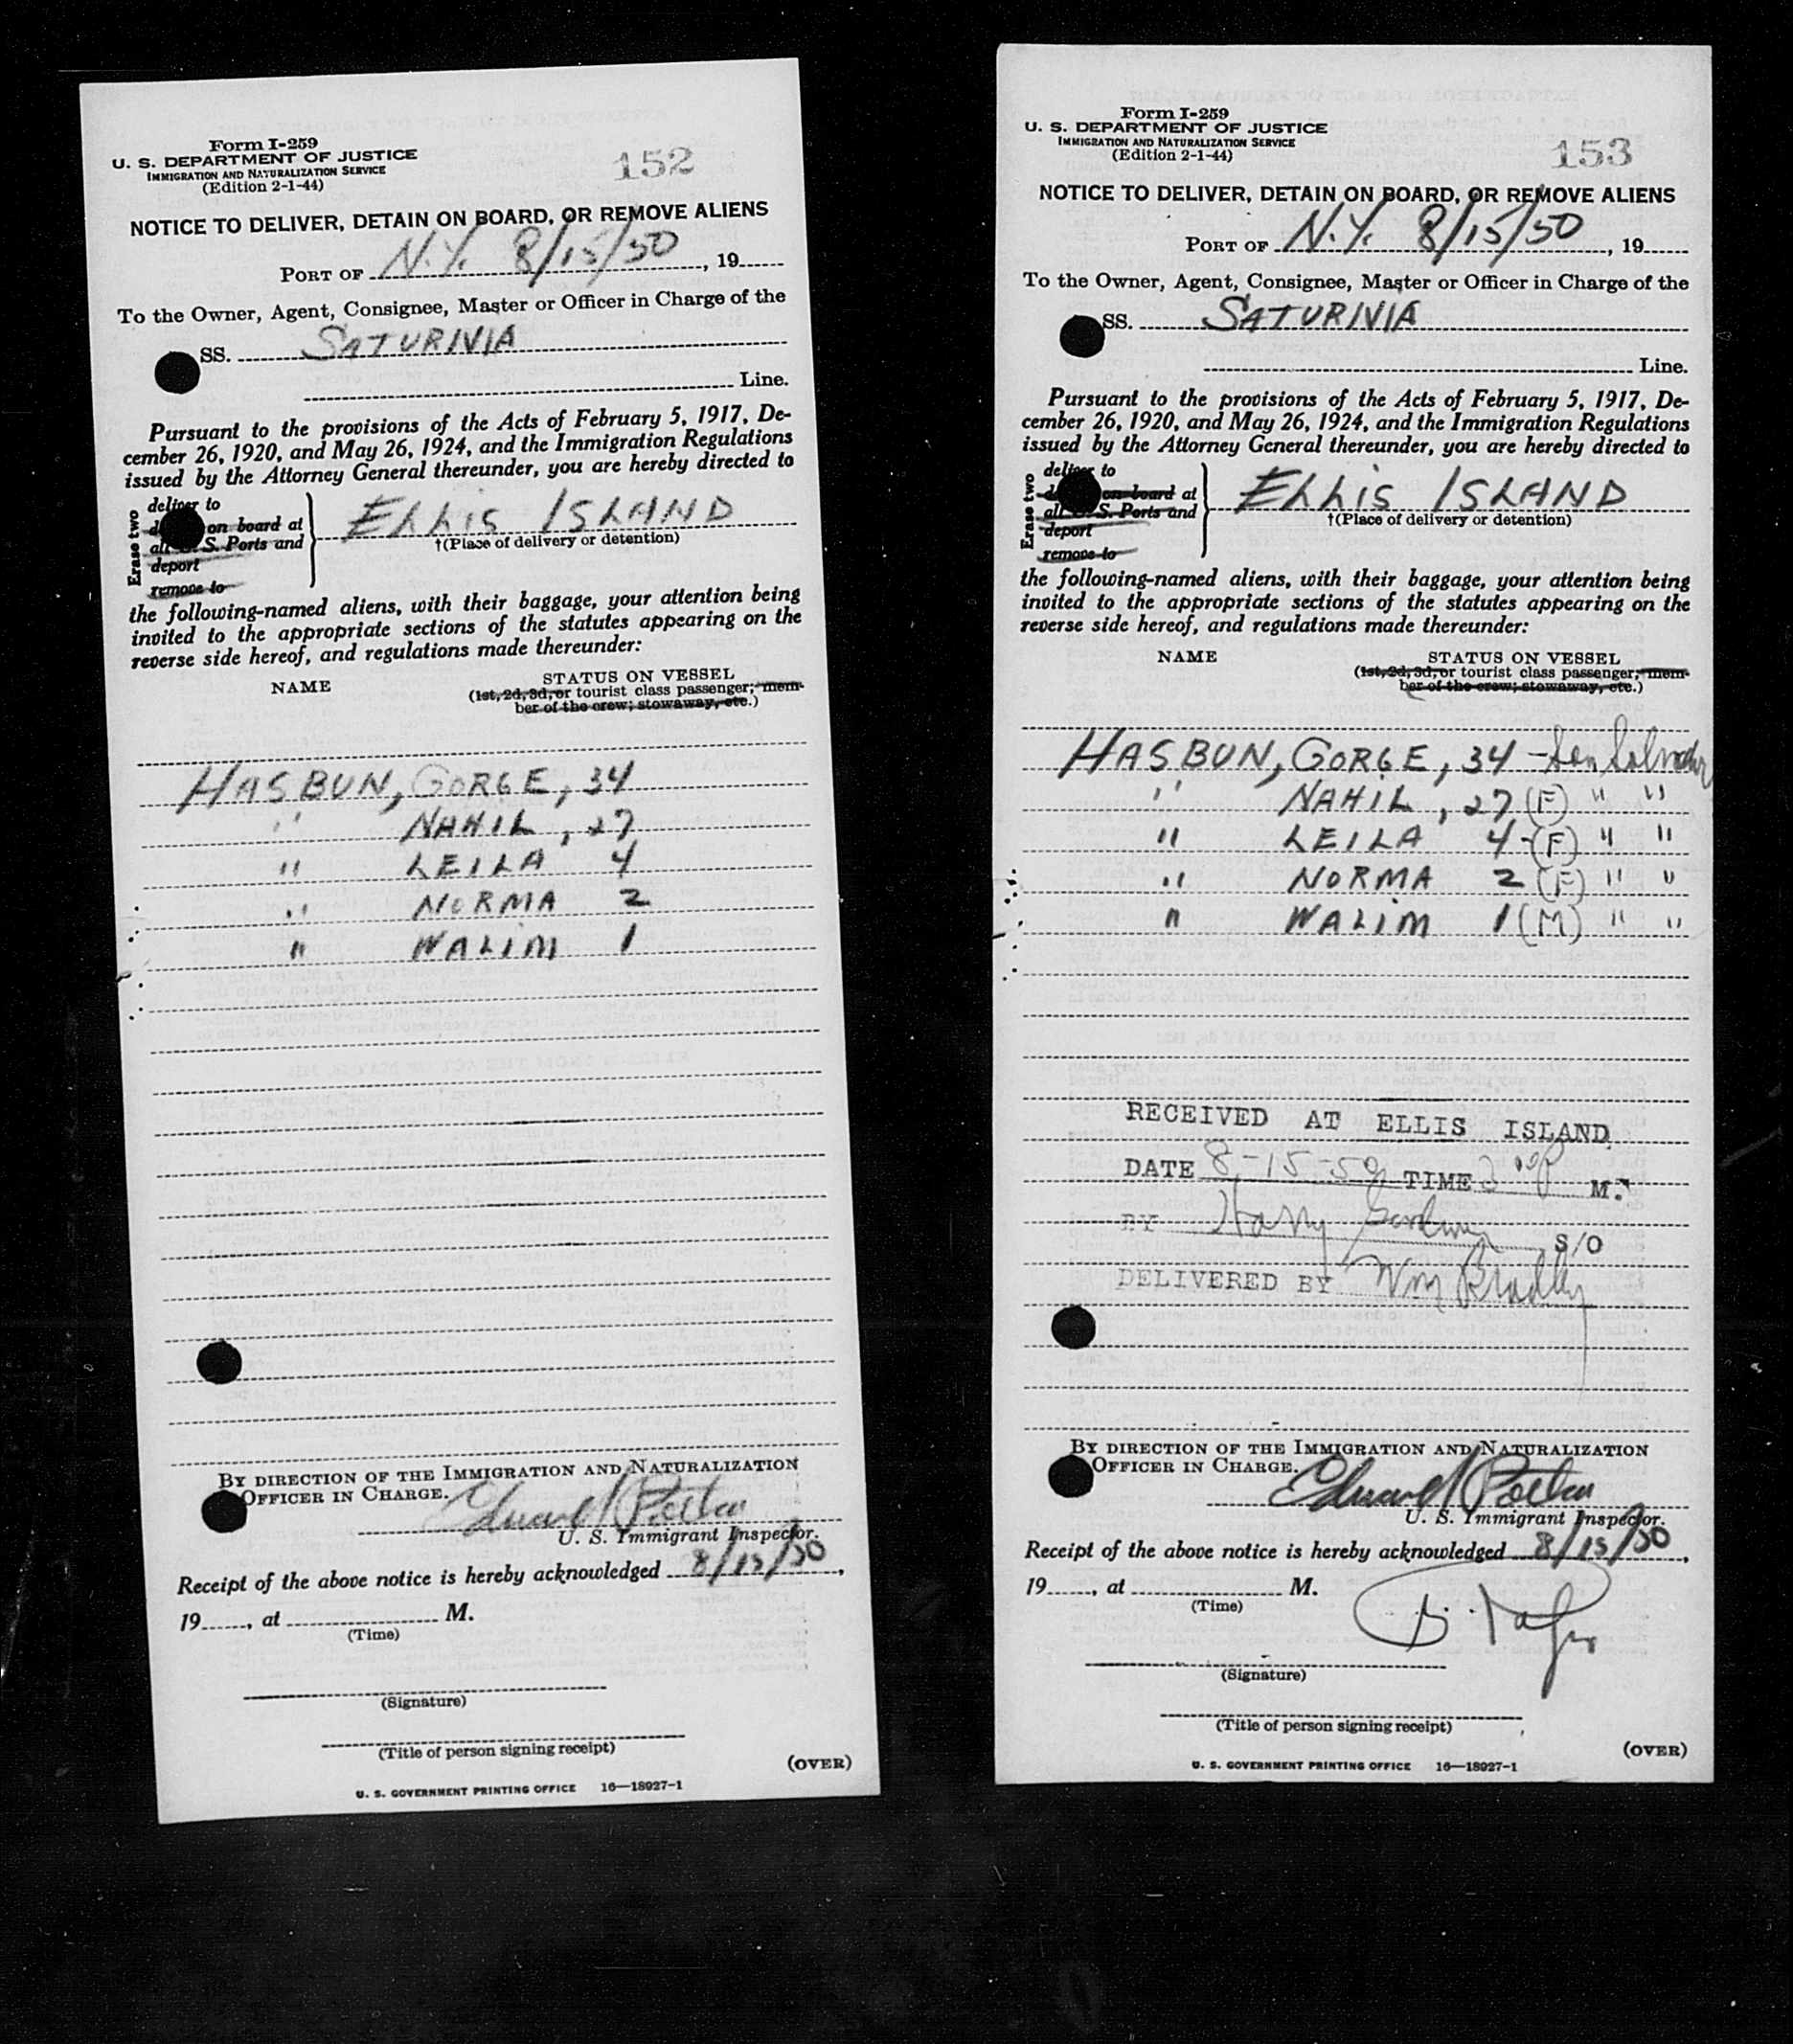 Form I-259
U. S. DEPARTMENT OF JUSTICE
IMMIGRATION AND NATURALIZATION SERVICE
(Edition 2-1-44)
152
NOTICE TO DELIVER, DETAIN ON BOARD, OR REMOVE ALIENS
PORT OF N.Y. 8/15/50, 19
To the Owner, Agent, Consignee, Master or Officer in Charge of the
SS. SATURNIA
Line.
Pursuant to the provisions of the Acts of February 5, 1917, De-
cember 26, 1920, and May 26, 1924, and the Immigration Regulations
issued by the Attorney General thereunder, you are hereby directed to
Erase two
deliver to
on board at
all U. S. Ports and
deport
remove to
ELLIS ISLAND
†(Place of delivery or detention)
the following-named aliens, with their baggage, your attention being
invited to the appropriate sections of the statutes appearing on the
reverse side hereof, and regulations made thereunder:
NAME
STATUS ON VESSEL
(1st, 2d, 3d, or tourist class passenger; mem-
ber of the crew; stowaway, etc.)
HASBUN, GORGE, 34
" NAHIL, 27
" LEILA 4
" NORMA 2
" WALIM 1
BY DIRECTION OF THE IMMIGRATION AND NATURALIZATION
OFFICER IN CHARGE.
Edward
U. S. Immigrant Inspector.
Receipt of the above notice is hereby acknowledged 8/15/50,
19, at M.
(Time)
(Signature)
(Title of person signing receipt)
(OVER)
U. S. GOVERNMENT PRINTING OFFICE 16—18927-1
Form I-259
U. S. DEPARTMENT OF JUSTICE
IMMIGRATION AND NATURALIZATION SERVICE
(Edition 2-1-44)
153
NOTICE TO DELIVER, DETAIN ON BOARD, OR REMOVE ALIENS
PORT OF N.Y. 8/15/50, 19
To the Owner, Agent, Consignee, Master or Officer in Charge of the
SS. SATURNIA
Line.
Pursuant to the provisions of the Acts of February 5, 1917, De-
cember 26, 1920, and May 26, 1924, and the Immigration Regulations
issued by the Attorney General thereunder, you are hereby directed to
Erase two
deliver to
on board at
all U. S. Ports and
deport
remove to
ELLIS ISLAND
†(Place of delivery or detention)
the following-named aliens, with their baggage, your attention being
invited to the appropriate sections of the statutes appearing on the
reverse side hereof, and regulations made thereunder:
NAME
STATUS ON VESSEL
(1st, 2d, 3d, or tourist class passenger; mem-
ber of the crew; stowaway, etc.)
HASBUN, GORGE, 34 - San Salvador
" NAHIL, 27 (F) " "
" LEILA 4 - (F) " "
" NORMA 2 (F) " "
" WALIM 1 (M) " "
RECEIVED AT ELLIS ISLAND
DATE 8-15-50 TIME 3 00 P M.
BY Harry S/O
DELIVERED BY Wm Bradley
BY DIRECTION OF THE IMMIGRATION AND NATURALIZATION
OFFICER IN CHARGE.
Edward
U. S. Immigrant Inspector.
Receipt of the above notice is hereby acknowledged 8/15/50,
19, at M.
(Time)
(Signature)
(Title of person signing receipt)
(OVER)
U. S. GOVERNMENT PRINTING OFFICE 16—18927-1